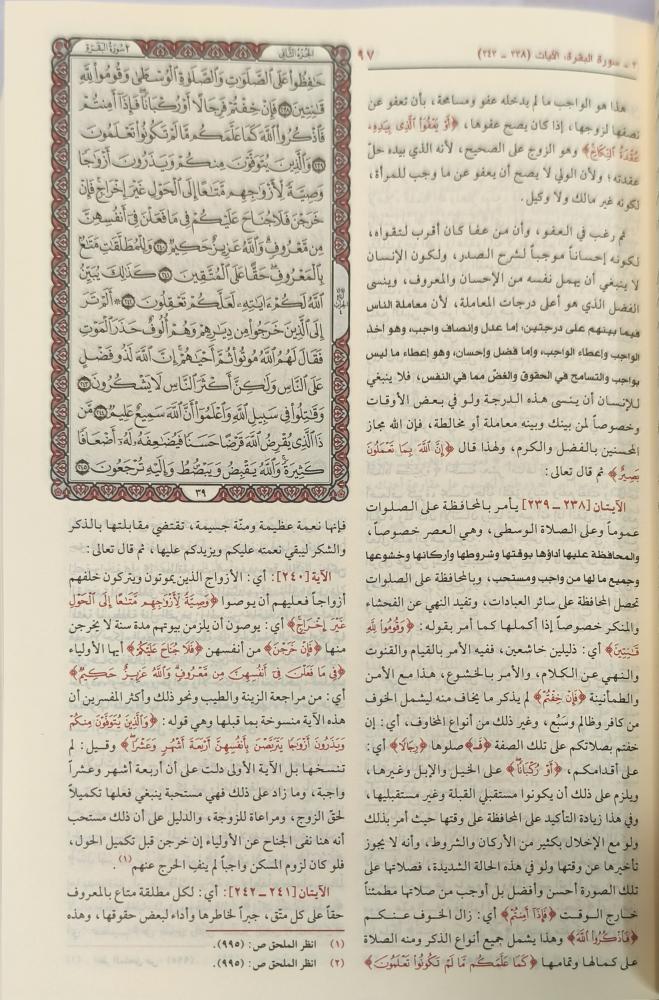 ٢ - سورة البقرة، الآيات (٢٣٨ - ٢٤٢)
٩٧
هذا هو الواجب ما لم يدخله عفو ومسامحة، بأن تعفو عن
نصفها لزوجها، إذا كان يصح عفوها، ﴿أَوْ يَعْفُوَا۟ ٱلَّذِى بِيَدِهِۦ
عُقْدَةُ ٱلنِّكَاحِ﴾ وهو الزوج على الصحيح، لأنه الذي بيده حلّ
عقدته؛ ولأن الولي لا يصح أن يعفو عن ما وجب للمرأة،
لكونه غير مالك ولا وكيل.
ثم رغب في العفو، وأن من عفا كان أقرب لتقواه،
لكونه إحساناً موجباً لشرح الصدر، ولكون الإنسان
لا ينبغي أن يهمل نفسه من الإحسان والمعروف، وينسى
الفضل الذي هو أعلى درجات المعاملة، لأن معاملة الناس
فيما بينهم على درجتين: إما عدل وإنصاف واجب، وهو أخذ
الواجب وإعطاء الواجب، وإما فضل وإحسان، وهو إعطاء ما ليس
بواجب والتسامح في الحقوق والغضّ مما في النفس، فلا ينبغي
للإنسان أن ينسى هذه الدرجة ولو في بعض الأوقات
وخصوصاً لمن بينك وبينه معاملة أو مخالطة، فإن الله مجاز
المحسنين بالفضل والكرم، ولهذا قال ﴿إِنَّ ٱللَّهَ بِمَا تَعْمَلُونَ
بَصِيرٌ﴾ ثم قال تعالى:
الآيتان [٢٣٨ - ٢٣٩] يأمر بالمحافظة على الصلوات
عموماً وعلى الصلاة الوسطى، وهي العصر خصوصاً،
والمحافظة عليها أداؤها بوقتها وشروطها وأركانها وخشوعها
وجميع ما لها من واجب ومستحب، وبالمحافظة على الصلوات
تحصل المحافظة على سائر العبادات، وتفيد النهي عن الفحشاء
والمنكر خصوصاً إذا أكملها كما أمر بقوله: ﴿وَقُومُوا۟ لِلَّهِ
قَٰنِتِينَ﴾ أي: ذليلين خاشعين، ففيه الأمر بالقيام والقنوت
والنهي عن الكلام، والأمر بالخشوع، هذا مع الأمن
والطمأنينة ﴿فَإِنْ خِفْتُمْ﴾ لم يذكر ما يخاف منه ليشمل الخوف
من كافر وظالم وسَبُع، وغير ذلك من أنواع المخاوف، أي: إن
خفتم بصلاتكم على تلك الصفة ﴿فَـ﴾ صلوها ﴿رِجَالًا﴾ أي:
على أقدامكم، ﴿أَوْ رُكْبَانًا﴾ على الخيل والإبل وغيرها،
ويلزم على ذلك أن يكونوا مستقبلي القبلة وغير مستقبليها،
وفي هذا زيادة التأكيد على المحافظة على وقتها حيث أمر بذلك
ولو مع الإخلال بكثير من الأركان والشروط، وأنه لا يجوز
تأخيرها عن وقتها ولو في هذه الحالة الشديدة، فصلاتها على
تلك الصورة أحسن وأفضل بل أوجب من صلاتها مطمئناً
خارج الوقت ﴿فَإِذَآ أَمِنتُمْ﴾ أي: زال الخوف عنكم
﴿فَٱذْكُرُوا۟ ٱللَّهَ﴾ وهذا يشمل جميع أنواع الذكر ومنه الصلاة
على كمالها وتمامها ﴿كَمَا عَلَّمَكُم مَّا لَمْ تَكُونُوا۟ تَعْلَمُونَ﴾
الجزء الثاني
٢ سورة البقرة
حَٰفِظُوا۟ عَلَى ٱلصَّلَوَٰتِ وَٱلصَّلَوٰةِ ٱلْوُسْطَىٰ وَقُومُوا۟ لِلَّهِ
قَٰنِتِينَ ٢٣٨ فَإِنْ خِفْتُمْ فَرِجَالًا أَوْ رُكْبَانًا فَإِذَآ أَمِنتُمْ
فَٱذْكُرُوا۟ ٱللَّهَ كَمَا عَلَّمَكُم مَّا لَمْ تَكُونُوا۟ تَعْلَمُونَ
٢٣٩ وَٱلَّذِينَ يُتَوَفَّوْنَ مِنكُمْ وَيَذَرُونَ أَزْوَٰجًا
وَصِيَّةً لِّأَزْوَٰجِهِم مَّتَٰعًا إِلَى ٱلْحَوْلِ غَيْرَ إِخْرَاجٍ فَإِنْ
خَرَجْنَ فَلَا جُنَاحَ عَلَيْكُمْ فِى مَا فَعَلْنَ فِىٓ أَنفُسِهِنَّ
مِن مَّعْرُوفٍ وَٱللَّهُ عَزِيزٌ حَكِيمٌ ٢٤٠ وَلِلْمُطَلَّقَٰتِ مَتَٰعٌۢ
بِٱلْمَعْرُوفِ حَقًّا عَلَى ٱلْمُتَّقِينَ ٢٤١ كَذَٰلِكَ يُبَيِّنُ
ٱللَّهُ لَكُمْ ءَايَٰتِهِۦ لَعَلَّكُمْ تَعْقِلُونَ ٢٤٢ ۞ أَلَمْ تَرَ
إِلَى ٱلَّذِينَ خَرَجُوا۟ مِن دِيَٰرِهِمْ وَهُمْ أُلُوفٌ حَذَرَ ٱلْمَوْتِ
فَقَالَ لَهُمُ ٱللَّهُ مُوتُوا۟ ثُمَّ أَحْيَٰهُمْ إِنَّ ٱللَّهَ لَذُو فَضْلٍ
عَلَى ٱلنَّاسِ وَلَٰكِنَّ أَكْثَرَ ٱلنَّاسِ لَا يَشْكُرُونَ ٢٤٣
وَقَٰتِلُوا۟ فِى سَبِيلِ ٱللَّهِ وَٱعْلَمُوٓا۟ أَنَّ ٱللَّهَ سَمِيعٌ عَلِيمٌ ٢٤٤ مَّن
ذَا ٱلَّذِى يُقْرِضُ ٱللَّهَ قَرْضًا حَسَنًا فَيُضَٰعِفَهُۥ لَهُۥٓ أَضْعَافًا
كَثِيرَةً وَٱللَّهُ يَقْبِضُ وَيَبْصُۜطُ وَإِلَيْهِ تُرْجَعُونَ ٢٤٥
٣٩
فإنها نعمة عظيمة ومنّة جسيمة، تقتضي مقابلتها بالذكر
والشكر ليبقي نعمته عليكم ويزيدكم عليها، ثم قال تعالى:
الآية [٢٤٠]: أي: الأزواج الذين يموتون ويتركون خلفهم
أزواجاً فعليهم أن يوصوا ﴿وَصِيَّةً لِّأَزْوَٰجِهِم مَّتَٰعًا إِلَى ٱلْحَوْلِ
غَيْرَ إِخْرَاجٍ﴾ أي: يوصون أن يلزمن بيوتهم مدة سنة لا يخرجن
منها ﴿فَإِنْ خَرَجْنَ﴾ من أنفسهن ﴿فَلَا جُنَاحَ عَلَيْكُمْ﴾ أيها الأولياء
﴿فِى مَا فَعَلْنَ فِىٓ أَنفُسِهِنَّ مِن مَّعْرُوفٍ وَٱللَّهُ عَزِيزٌ حَكِيمٌ﴾
أي: من مراجعة الزينة والطيب ونحو ذلك وأكثر المفسرين أن
هذه الآية منسوخة بما قبلها وهي قوله: ﴿وَٱلَّذِينَ يُتَوَفَّوْنَ مِنكُمْ
وَيَذَرُونَ أَزْوَٰجًا يَتَرَبَّصْنَ بِأَنفُسِهِنَّ أَرْبَعَةَ أَشْهُرٍ وَعَشْرًا﴾ وقيل: لم
تنسخها بل الآية الأولى دلت على أن أربعة أشهر وعشراً
واجبة، وما زاد على ذلك فهي مستحبة ينبغي فعلها تكميلاً
لحقّ الزوج، ومراعاة للزوجة، والدليل على أن ذلك مستحب
أنه هنا نفى الجناح عن الأولياء إن خرجن قبل تكميل الحول،
فلو كان لزوم المسكن واجباً لم ينفِ الحرج عنهم (١).
الآيتان [٢٤١ - ٢٤٢]: أي: لكل مطلقة متاع بالمعروف
حقاً على كل متّقٍ، جبراً لخاطرها وأداء لبعض حقوقها، وهذه
(١) انظر الملحق ص: (٩٩٥).
(٢) انظر الملحق ص: (٩٩٥).